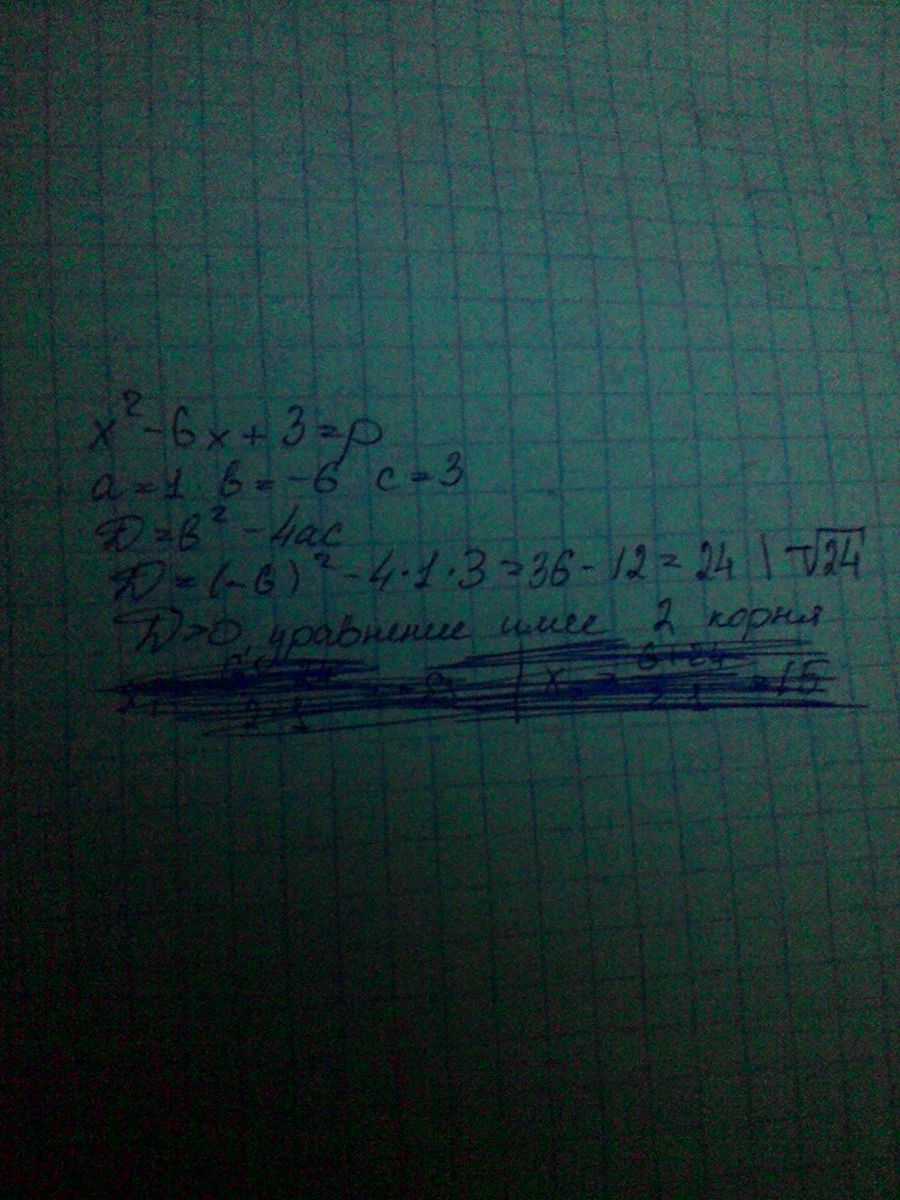 x² - 6x + 3 = p
a = 1 в = -6 c = 3
D = в² - 4ac
D = (-6)² - 4·1·3 = 36 - 12 = 24 | √24
D>0, уравнение имее 2 корня
x = 6+24 = 15